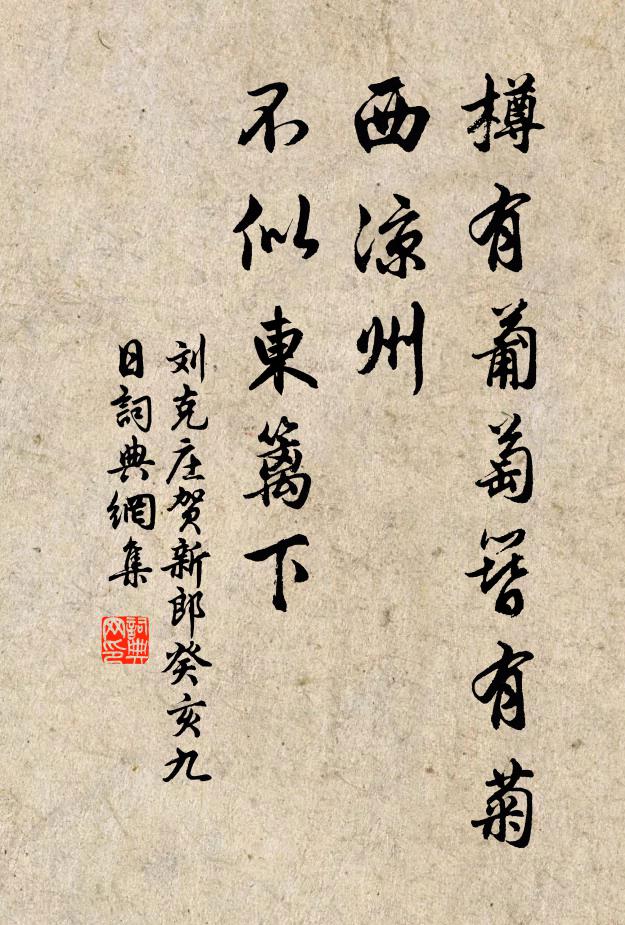 樽有葡萄簪有菊
西凉州
不似東籬下
刘克庄贺新郎癸亥九
日詞典網集
詞典网印